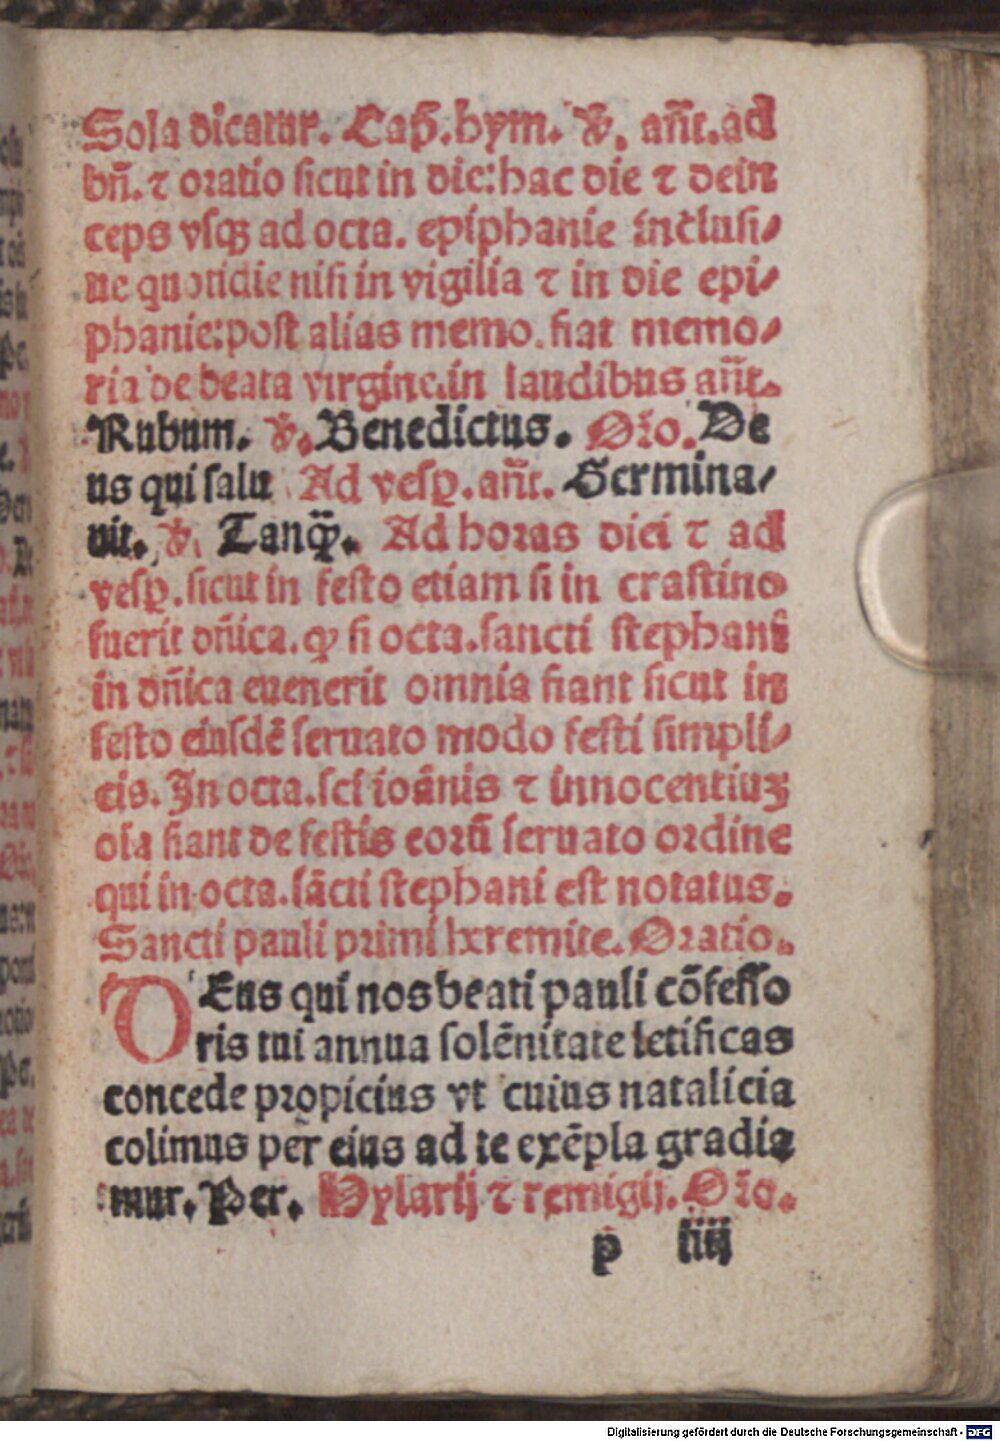 Sola dicatur. Cap̄. hym. ℣. añt. ad
bñ. ⁊ oratio sicut in die: hac die ⁊ dein
ceps vsqȝ ad octa. epiphanie inclusi⸗
ue quotidie nisi in vigilia ⁊ in die epi⸗
phanie: post alias memo. fiat memo⸗
ria de beata virgine. in laudibus añt.
Rubum. ℣. Benedictus. Oꝛ̃o. De
us qui salu Ad vesp̲. añt. Germina⸗
uit. ℣. Tanq̄ꝫ. Ad horas diei ⁊ ad
vesp̲. sicut in festo etiam si in crastino
fuerit dñica. ꝙ si octa. sancti stephani
in dñica euenerit omnia fiant sicut in
festo eiusdē seruato modo festi simpli⸗
cis. In octa. sci ioānis ⁊ innocentiuȝ
oīa fiant de festis eorū seruato ordine
qui in octa. sācti stephani est notatus.
Sancti pauli primi heremite. Oratio.
DEus qui nos beati pauli cōfesso
ris tui annua solēnitate letificas
concede propicius vt cuius natalicia
colimus per eius ad te exēpla gradia
mur. Per. Hylarij ⁊ remigij. Oꝛ̃o.
p iiij
Digitalisierung gefördert durch die Deutsche Forschungsgemeinschaft - DFG